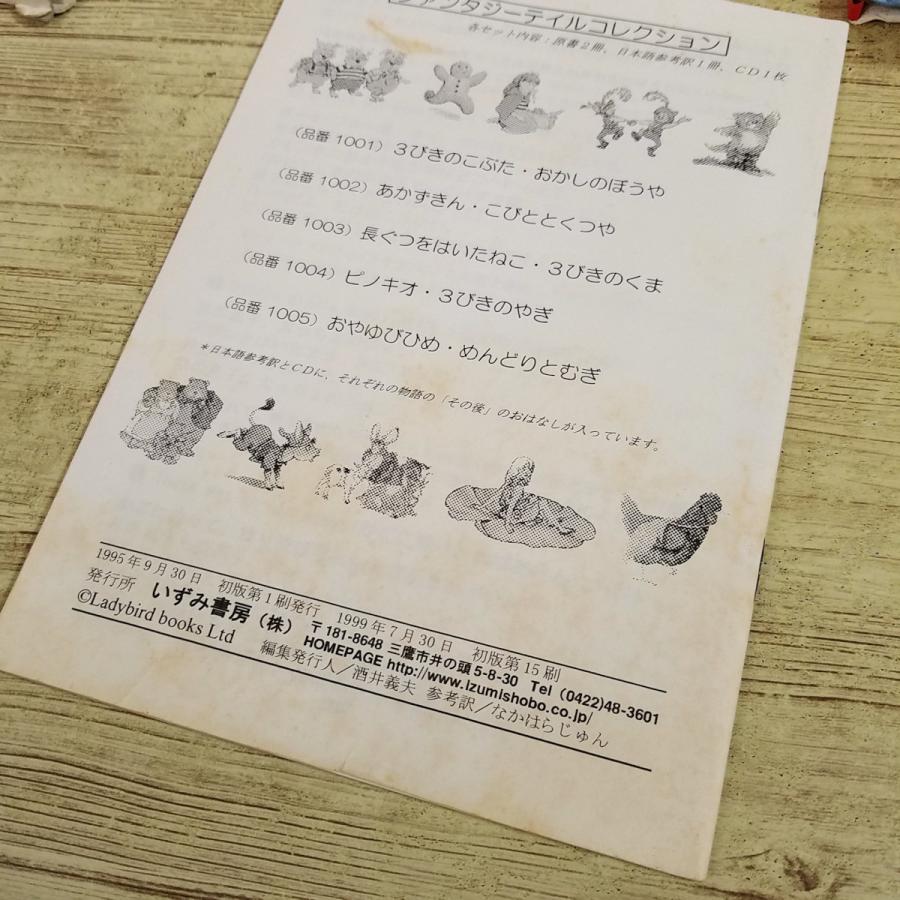 ファンタジーテイルコレクション
各セット内容：原書２冊、日本語参考訳１冊、ＣＤ１枚
（品番 1001）３びきのこぶた・おかしのぼうや
（品番 1002）あかずきん・こびととくつや
（品番 1003）長ぐつをはいたねこ・３びきのくま
（品番 1004）ピノキオ・３びきのやぎ
（品番 1005）おやゆびひめ・めんどりとむぎ
＊日本語参考訳とＣＤに、それぞれの物語の「その後」のおはなしが入っています。
1995年9月30日 初版第1刷発行 1999年7月30日 初版第15刷
発行所 いずみ書房（株） 〒181-8648 三鷹市井の頭5-8-30 Tel (0422)48-3601
HOMEPAGE http://www.izumishobo.co.jp/
©Ladybird books Ltd 編集発行人／酒井義夫 参考訳／なかはらじゅん